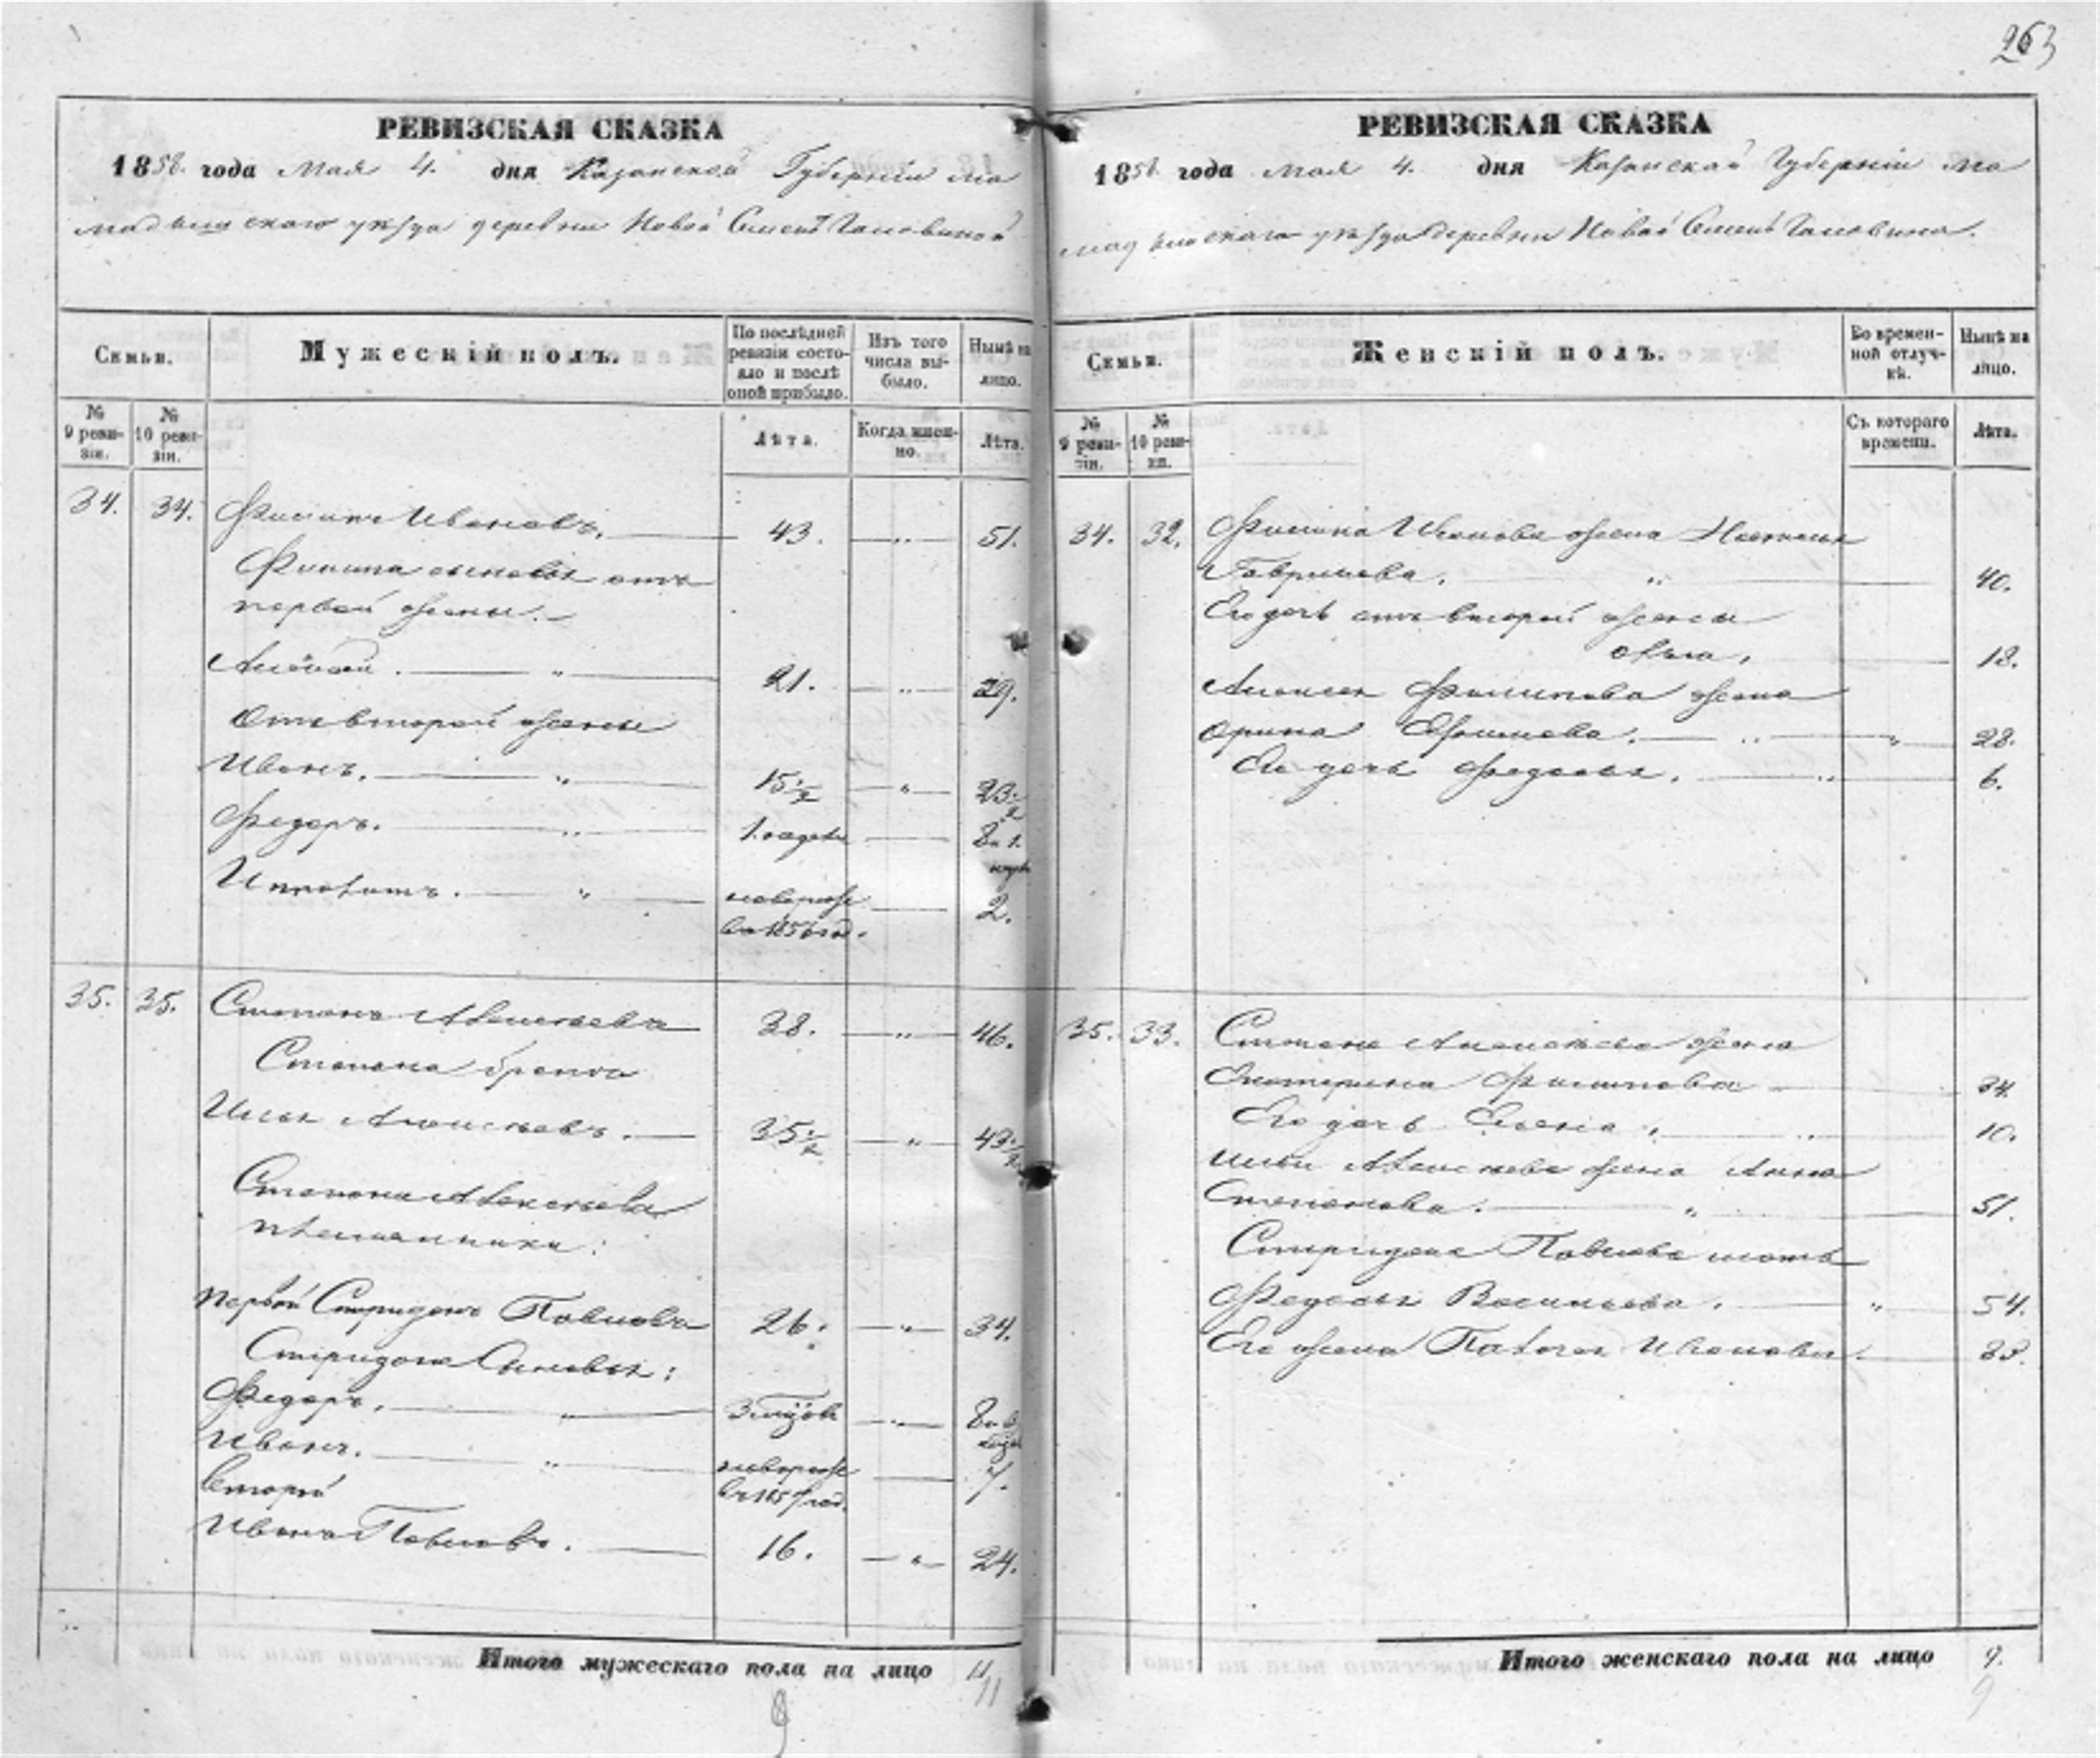 263
РЕВИЗСКАЯ СКАЗКА
1858. года Мая 4. дня Казанской Губернiи Ма
мадышскаго уѣзда деревни Новой
Семьи.
Мужескiй полъ.
По послѣдней ревизiи состояло и послѣ оной прибыло.
Изъ того числа выбыло.
Нынѣ на лицо.
№ 9 ревизiи.
№ 10 ревизiи.
Лѣта.
Когда именно.
Лѣта.
34. 34. Филипъ Ивановъ. 43. „ 51.
Филипа сыновья отъ
первой жены.
Алексѣй. „ 21. „ 29.
Отъ второй жены
Иванъ. „ 15 1/2 „ 23 1/2
Федоръ. „ 1. недели 8 и 1. нед
„ новорож въ 1856 год. 2.
35. 35. Степанъ Алексѣевъ 38. „ 46.
Степана братъ
Илья Алексѣевъ. 35 1/2 „ 43 1/2
Степана Алексѣева
племянники:
Первой Спиридонъ Павловъ 26. „ 34.
Спиридона Сыновья:
Федоръ. „ 3 „ 8 и 3
Иванъ. „ новорож въ 1857 год. 7.
Второй
Иванъ Павловъ. 16. „ 24.
Итого мужескаго пола на лицо 11
11
9
РЕВИЗСКАЯ СКАЗКА
1858. года мая 4. дня Казанской Губернiи Ма
мадышскаго уѣзда деревни Новой
Семьи.
Женскiй полъ.
Во временной отлучкѣ.
Нынѣ на лицо.
№ 9 ревизiи.
№ 10 ревизiи.
Съ котораго времени.
Лѣта.
34. 32. Филипа Иванова жена Наталья
Гаврилова. „ 40.
Его дочь отъ второй жены
18.
Алексея Филипова жена
Орина Ефимова. „ „ 28.
Его дочь Федосья. „ 6.
35. 33. Степана Алексѣева жена
Екатерина Филипова 34.
Его дочь Елена. „ 10.
Ильи Алексѣева жена Анна
Степанова. „ 51.
Спиридона Павлова мать
Федосья Васильева. „ 54.
Его жена Пелагея Иванова. 33.
Итого женскаго пола на лицо 9.
9